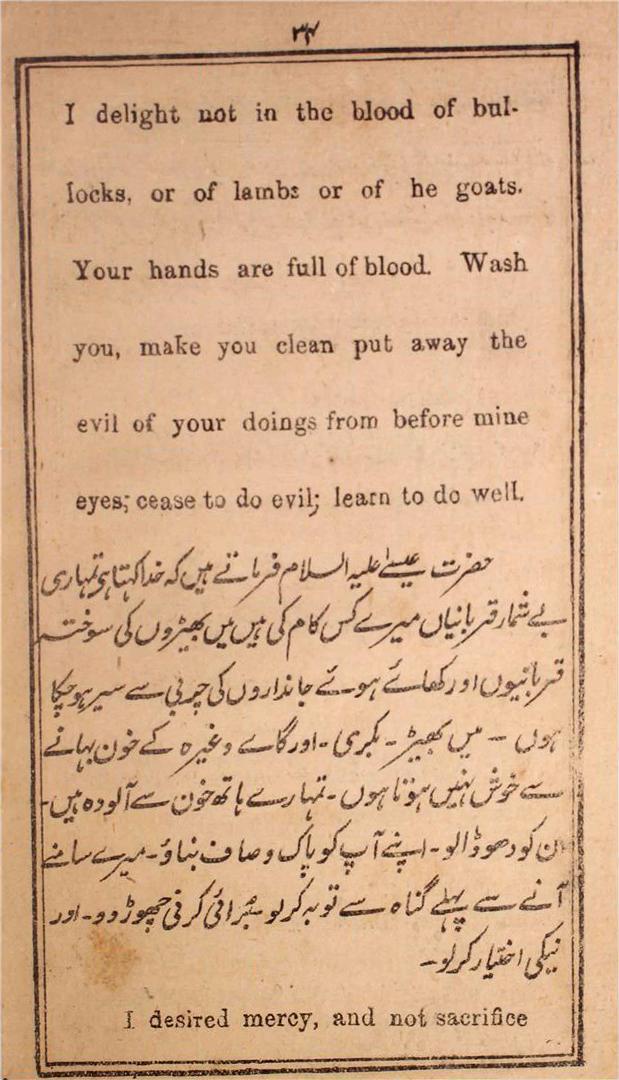 ۳۴
I delight not in the blood of bul-
locks, or of lambs or of he goats.
Your hands are full of blood. Wash
you, make you clean put away the
evil of your doings from before mine
eyes; cease to do evil; learn to do well.
حضرت عیسےٰ علیہ السلام فرماتے ہیں کہ خدا کہتا ہی تمہاری
بے شمار قربانیاں میرے کس کام کی ہیں میں بھیڑوں کی سوختہ
قربانیوں اور کھائے ہوئے جانداروں کی چربی سے سیر ہو چکا
ہوں - میں بھیڑ - بکری - اور گائے وغیرہ کے خون بہانے
سے خوش نہیں ہوتا ہوں - تمہارے ہاتھ خون سے آلودہ ہیں -
ان کو دھو ڈالو - اپنے آپ کو پاک و صاف بناؤ - میرے سامنے
آنے سے پہلے گناہ سے توبہ کر لو بُرائی کرنی چھوڑ دو - اور
نیکی اختیار کر لو -
I desired mercy, and not sacrifice